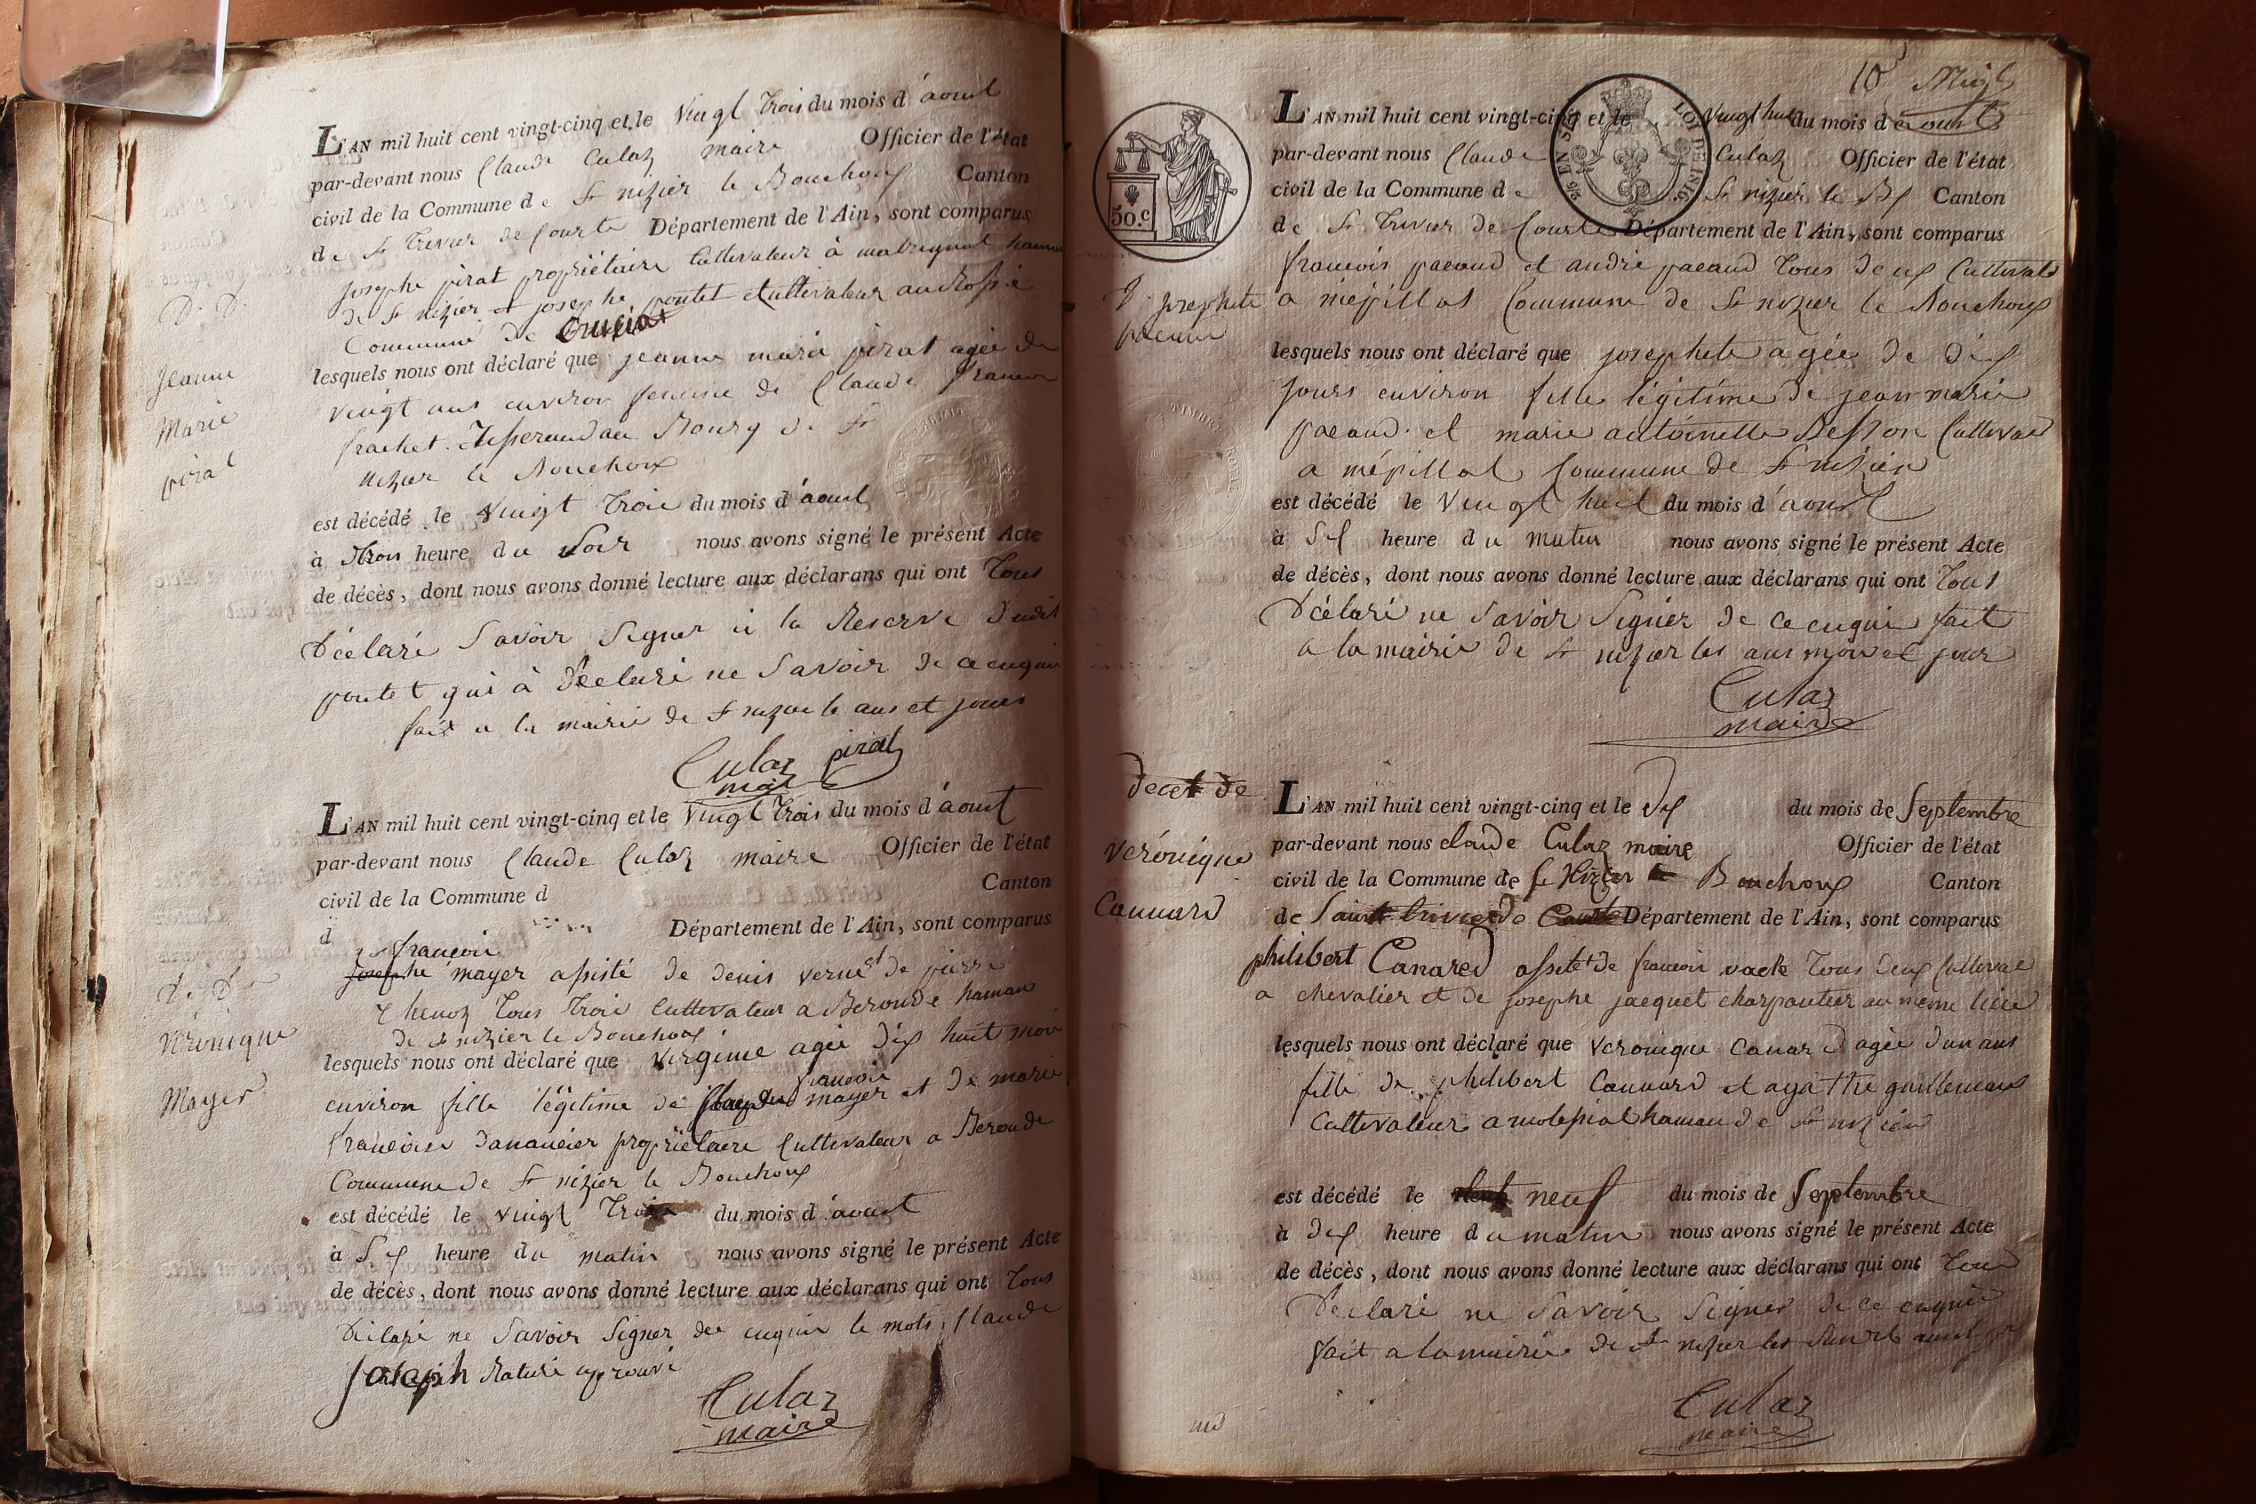 L'AN mil huit cent vingt-cinq et le vingt trois du mois d'aout
par-devant nous Claude Culaz maire Officier de l'état
civil de la Commune de St nizier le Bouchoux Canton
de St Trivier de Courte Département de l'Ain, sont comparus
josephe pirat propriétaire Cultivateur à hamau
de St nizier et josephe poutet Cultivateur au
Commune de Curciat
lesquels nous ont déclaré que jeanne marie pirat agée de
vingt ans environ femme de Claude francois
frachet Tisserand au Bourg de St
nizier le Bouchoux
est décédé le vingt trois du mois d'aout
à trois heure du soir nous avons signé le présent Acte
de décès, dont nous avons donné lecture aux déclarans qui ont Tous
Déclaré Savoir Signer à la Reserve Dudit
poutet qui à déclaré ne Savoir de ce enquis
fait a la mairie de St nizier le ans et jours
Culaz pirat
maire
D. D.
jeanne
Marie
pirat
L'AN mil huit cent vingt-cinq et le vingt trois du mois d'aout
par-devant nous Claude Culaz maire Officier de l'état
civil de la Commune d Canton
d Département de l'Ain, sont comparus
francois
josephe mayer assisté de denis vernet de pierre
Chenoz Tous Trois Cultivateur a Beronde hamau
de St nizier le Bouchoux
lesquels nous ont déclaré que virginie agée dix huit mois
francois
environ fille légitime de mayer et de marie
francoise danancier propriétaire Cultivateur a Beronde
Commune de St nizier le Bouchoux
est décédé le vingt Trois du mois d'aout
à Six heure du matin nous avons signé le présent Acte
de décès, dont nous avons donné lecture aux déclarans qui ont Tous
Déclaré ne Savoir Signer de enquis le mots Claude
joseph Raturé approuvé
Culaz
maire
D. D.
Véronique
Mayer
10
50.c
LOI DE 1816
L'AN mil huit cent vingt-cinq et le vingt huit du mois d'aout
par-devant nous Claude Culaz Officier de l'état
civil de la Commune de St nizier le Bx Canton
de St Trivier de Courte Département de l'Ain, sont comparus
francois pacaud et andré pacaud Tous deux Cultivate
a mépillat Commune de St nizier le Bouchoux
lesquels nous ont déclaré que josephete agée de dix
jours environ fille légitime de jean marie
pacaud et marie antoinette Besson Cultivat
a mépillat Commune de St nizier
est décédé le vingt huit du mois d'aout
à Six heure du matin nous avons signé le présent Acte
de décès, dont nous avons donné lecture aux déclarans qui ont Tous
Déclaré ne Savoir Signer de ce enquis fait
a la mairie de St nizier les ans mois et jour
Culaz
maire
D josephete
pacaud
L'AN mil huit cent vingt-cinq et le dix du mois de Septembre
par-devant nous claude Culaz maire Officier de l'état
civil de la Commune de St Nizier le Bouchoux Canton
de Saint trivier de Courte Département de l'Ain, sont comparus
philibert Canard assité de francois vack Tous deux Cultivat
a chevalier et de josephe jacquet charpantier au meme lieu
lesquels nous ont déclaré que veronique Canard agée d'un ans
fille de philibert Cannard et agathe guillemaux
Cultivateur a hamau de St nizier
est décédé le neuf du mois de Septembre
à dix heure du matin nous avons signé le présent Acte
de décès, dont nous avons donné lecture aux déclarans qui ont Tous
Déclaré ne Savoir Signer de ce enquis
fait a la mairie de St nizier les
Culaz
maire
decet de
Véronique
Cannard